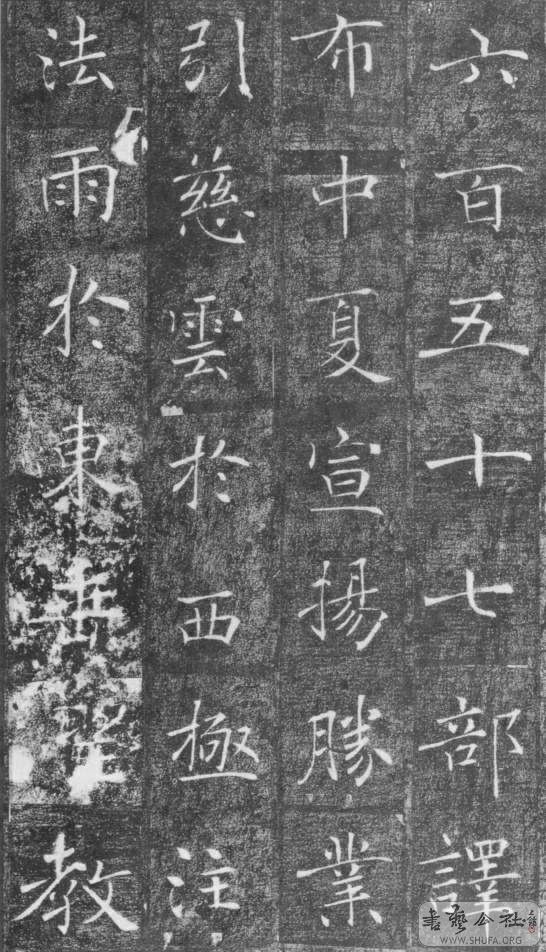 六百五十七部譯
布中夏宣揚勝業
引慈雲於西極注
法雨於東垂聖教
書藝公社
WWW.SHUFA.ORG